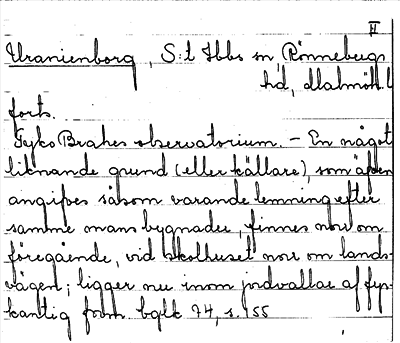 II
Uranienborg, S:t Ibbs sn, Rönnebergs
hd, Malmöh. l
forts.
Tyko Brahes observatorium. – En något
liknande grund (eller källare), som äfven
angifves såsom varande lemning efter
samme mans bygnader, finnes norr om
föregående, vid skolhuset norr om lands-
vägen; ligger nu inom jordvallar af fyr-
kantig form bglt 74, s. 155